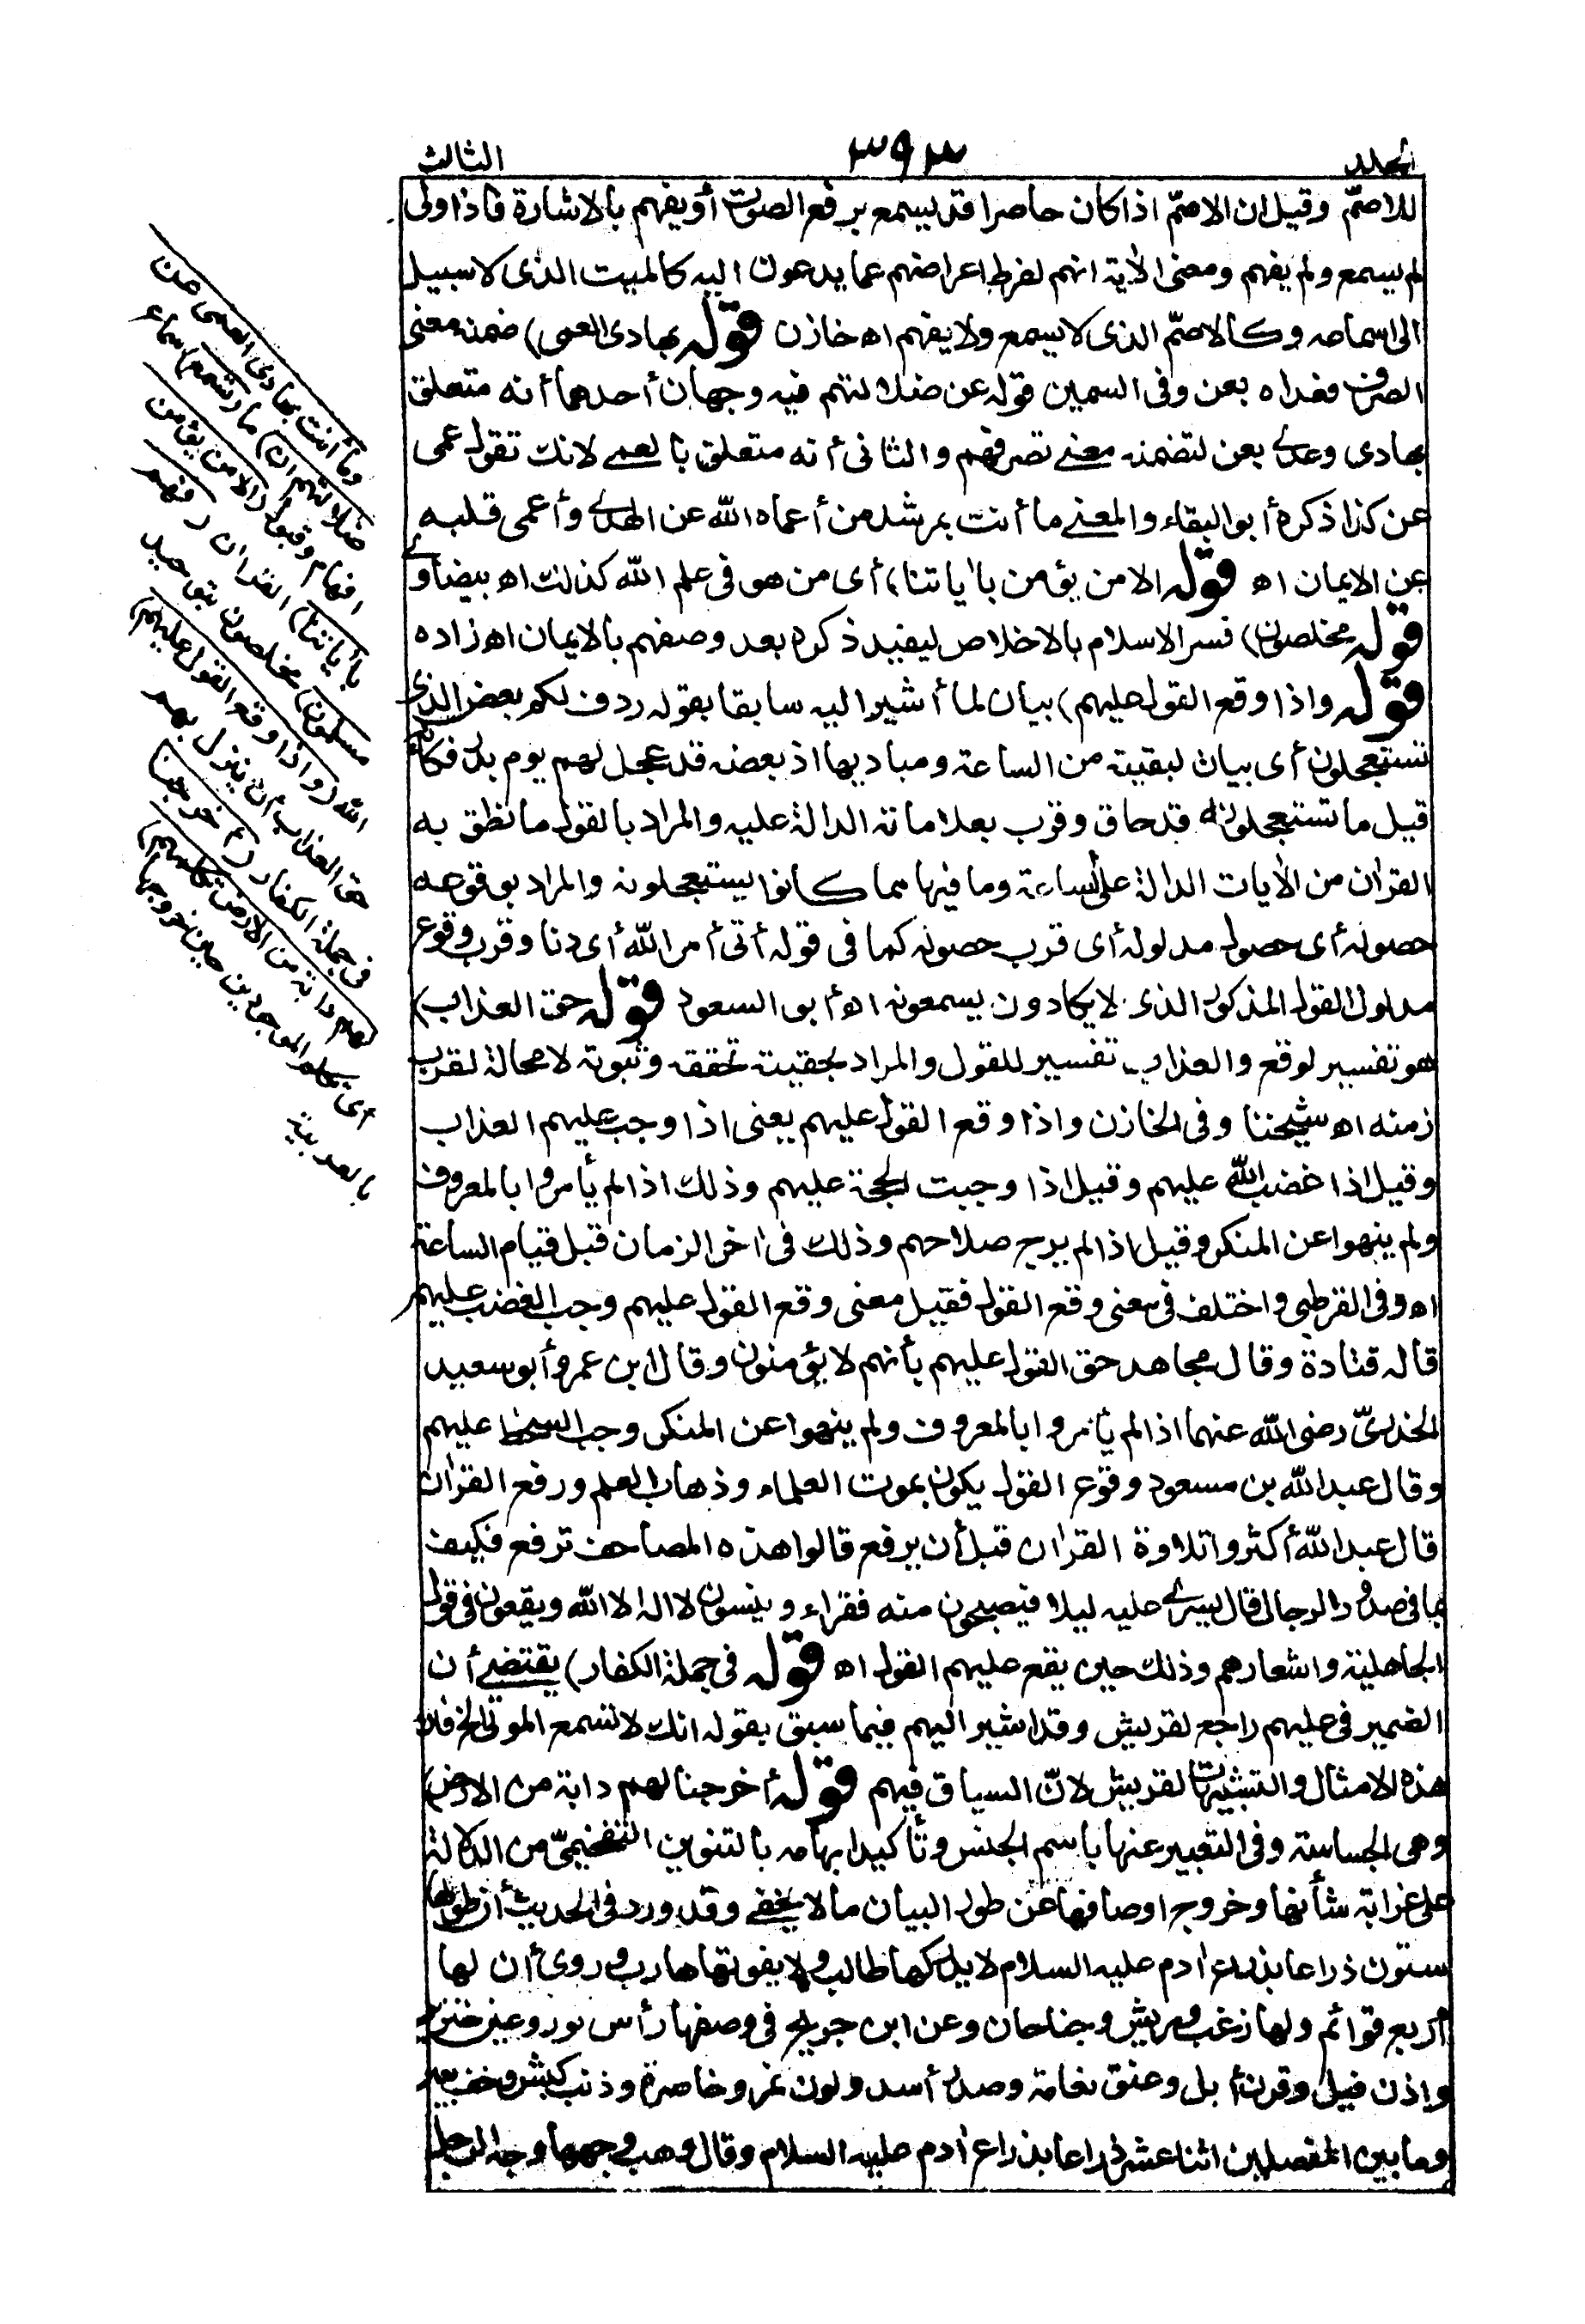 المجلد
٣٩٣
الثالث
للاصمّ وقيل ان الاصمّ اذا كان حاضرا قد يسمع برفع الصوت أو يفهم بالاشارة فاذا ولى
لم يسمع ولم يفهم ومعنى الآية انهم لفرط اعراضهم عما يدعون اليه كالميت الذى لا سبيل
الى اسماعه وكالاصمّ الذى لا يسمع ولا يفهم اه خازن قوله بهادى العمى) ضمنه معنى
الصرف فعداه بعن وفى السمين قوله عن ضلالتهم فيه وجهان أحدهما أنه متعلق
بهادى وعدى بعن لتضمنه معنى تصرفهم والثانى أنه متعلق بالعمى لانك تقول عمى
عن كذا ذكره أبو البقاء والمعنى ما أنت بمرشد من أعماه الله عن الهدى وأعمى قلبه
عن الايمان اه قوله الا من يؤمن بآياتنا) أى من هو فى علم الله كذلك اه بيضاوى
قوله مخلصون) فسر الاسلام بالاخلاص ليفيد ذكره بعد وصفهم بالايمان اه زاده
قوله واذا وقع القول عليهم) بيان لما أشير اليه سابقا بقوله ردف لكم بعض الذى
تستعجلون أى بيان لبقيته من الساعة ومباديها اذ بعضه قد عجل لهم يوم بدر فكأنه
قيل ما تستعجلونه قد حاق وقرب بعلاماته الدالة عليه والمراد بالقول ما نطق به
القرآن من الآيات الدالة على الساعة وما فيها مما كانوا يستعجلونه والمراد بوقوعه
حصوله أى حصول مدلوله أى قرب حصوله كما فى قوله أتى أمر الله أى دنا وقرب وقوع
مدلول القول المذكور الذى لا يكادون يسمعونه اه أبو السعود قوله حق العذاب)
هو تفسير لوقع والعذاب تفسير للقول والمراد بحقيته تحققه وثبوته لا محالة لقرب
زمنه اه شيخنا وفى الخازن واذا وقع القول عليهم يعنى اذا وجب عليهم العذاب
وقيل اذا غضب الله عليهم وقيل اذا وجبت الحجة عليهم وذلك اذا لم يأمروا بالمعروف
ولم ينهوا عن المنكر وقيل اذا لم يرج صلاحهم وذلك فى آخر الزمان قبل قيام الساعة
اه وفى القرطبى واختلف فى معنى وقع القول فقيل معنى وقع القول عليهم وجب الغضب عليهم
قاله قتادة وقال مجاهد حق القول عليهم بأنهم لا يؤمنون وقال ابن عمر وأبو سعيد
الخدرىّ رضى الله عنهما اذا لم يأمروا بالمعروف ولم ينهوا عن المنكر وجب السخط عليهم
وقال عبد الله بن مسعود وقوع القول يكون بموت العلماء وذهاب العلم ورفع القرآن
قال عبد الله أكثروا تلاوة القرآن قبل أن يرفع قالوا هذه المصاحف ترفع فكيف
بما فى صدور الرجال قال يسرى عليه ليلا فيصبحون منه فقراء وينسون لا اله الا الله ويقعون فى قول
الجاهلية واشعارهم وذلك حين يقع عليهم القول اه قوله فى جملة الكفار) يقتضى أن
الضمير فى عليهم راجع لقريش وقد اشير اليهم فيما سبق بقوله انك لا تسمع الموتى الخ فلان
هذه الامثال والتشبيهات لقريش لانّ السياق فيهم قوله أخرجنا لهم دابة من الارض)
وهى الجساسة وفى التعبير عنها باسم الجنس وتأكيد ابهامه بالتنوين التفخيمىّ من الدلالة
على غرابة شأنها وخروج اوصافها عن طول البيان ما لا يخفى وقد ورد فى الحديث أن طولها
ستون ذراعا بذراع آدم عليه السلام لا يدركها طالب ولا يفوتها هارب وروى أن لها
أربع قوائم ولها زغب وريش وجناحان وعن ابن جريج فى وصفها رأس ثور وعين خنزير
واذن فيل وقرن أبل وعنق نعامة وصدر أسد ولون نمر وخاصرة وذنب كبش وخف بعير
وما بين المفصلين اثنا عشر ذراعا بذراع آدم عليه السلام وقال وهب وجهها وجه الرجل
وما أنت بهادى العمى عن
ضلالتهم ان) ما (تسمع) سماع
افهام وقبول (الا من يؤمن
بآياتنا) القرآن (فهم
مسلمون) مخلصون بتوحيد
الله (واذا وقع القول عليهم)
حق العذاب أن ينزل بهم
فى جملة الكفار (أخرجنا
لهم دابة من الارض تكلمهم)
أى تكلم الموجودين حين خروجها
بالعربية